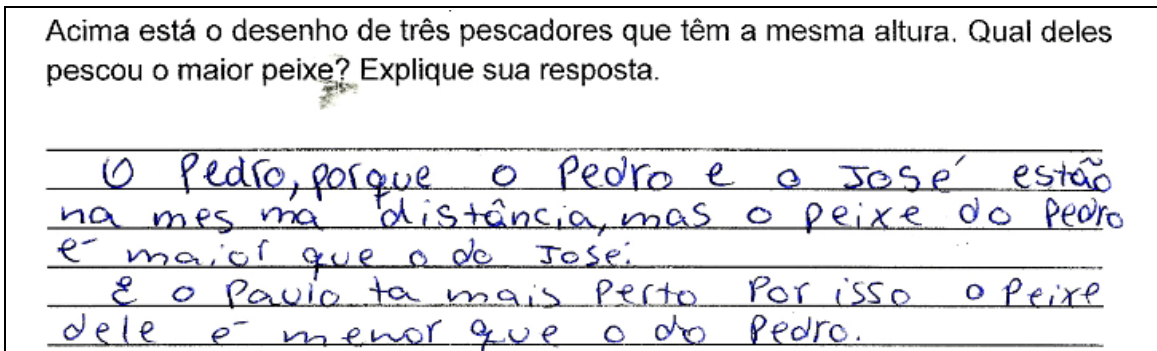 Acima está o desenho de três pescadores que têm a mesma altura. Qual deles
pescou o maior peixe? Explique sua resposta.
O Pedro, porque o Pedro e o José estão
na mesma distância, mas o peixe do Pedro
é maior que o do José.
E o Paulo ta mais perto por isso o peixe
dele é menor que o do Pedro.